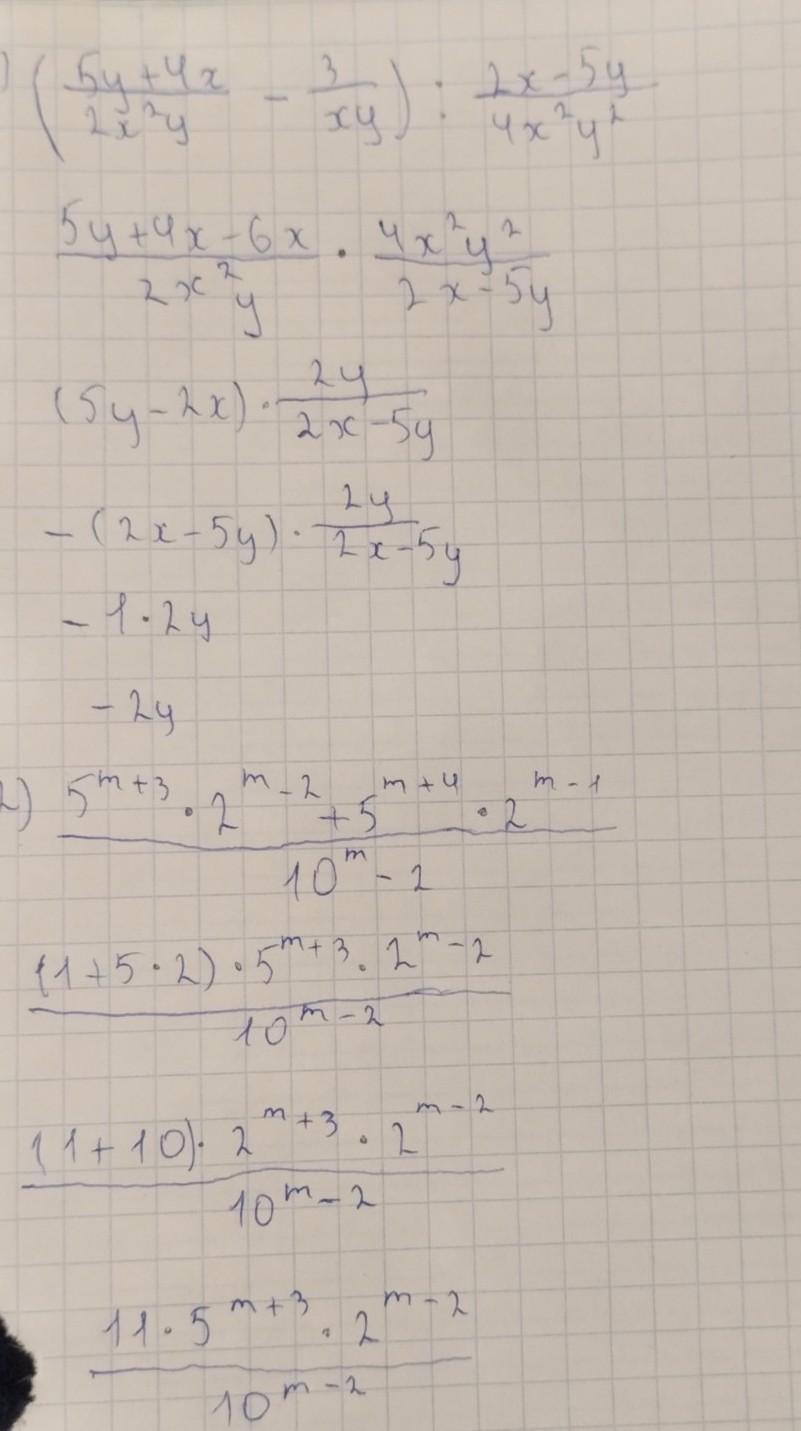 ) ((5y+4x)/(2x²y) - 3/(xy)) : (2x-5y)/(4x²y²)
(5y+4x-6x)/(2x²y) · (4x²y²)/(2x-5y)
(5y-2x) · 2y/(2x-5y)
-(2x-5y) · 2y/(2x-5y)
-1·2y
-2y
2) (5^(m+3) · 2^(m-2) + 5^(m+4) · 2^(m-1))/(10^m - 2)
((1+5·2) · 5^(m+3) · 2^(m-2))/(10^(m-2))
((1+10) · 2^(m+3) · 2^(m-2))/(10^(m-2))
(11 · 5^(m+3) · 2^(m-2))/(10^(m-2))